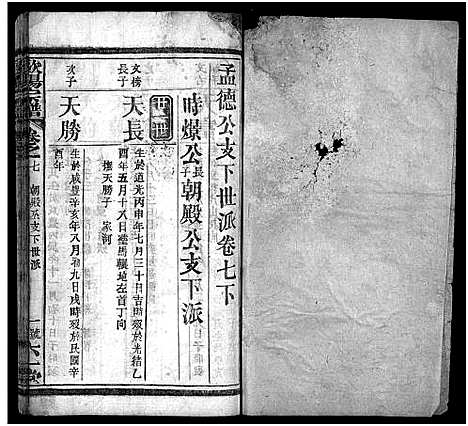 孟德公支下世派卷七下
時燝公長子朝殿公支下派
廿一世
文榜長子
天長
生於道光丙申年七月三十日吉時歿於光緒乙
酉年五月十八日塟馬鞍地左首丁向
撫天勝子 家河
次子
天勝
生於咸豐辛亥年八月初九日戌時歿於民國辛
酉年
歐陽三譜 卷之七 朝殿系支下世派
一號 六一堂